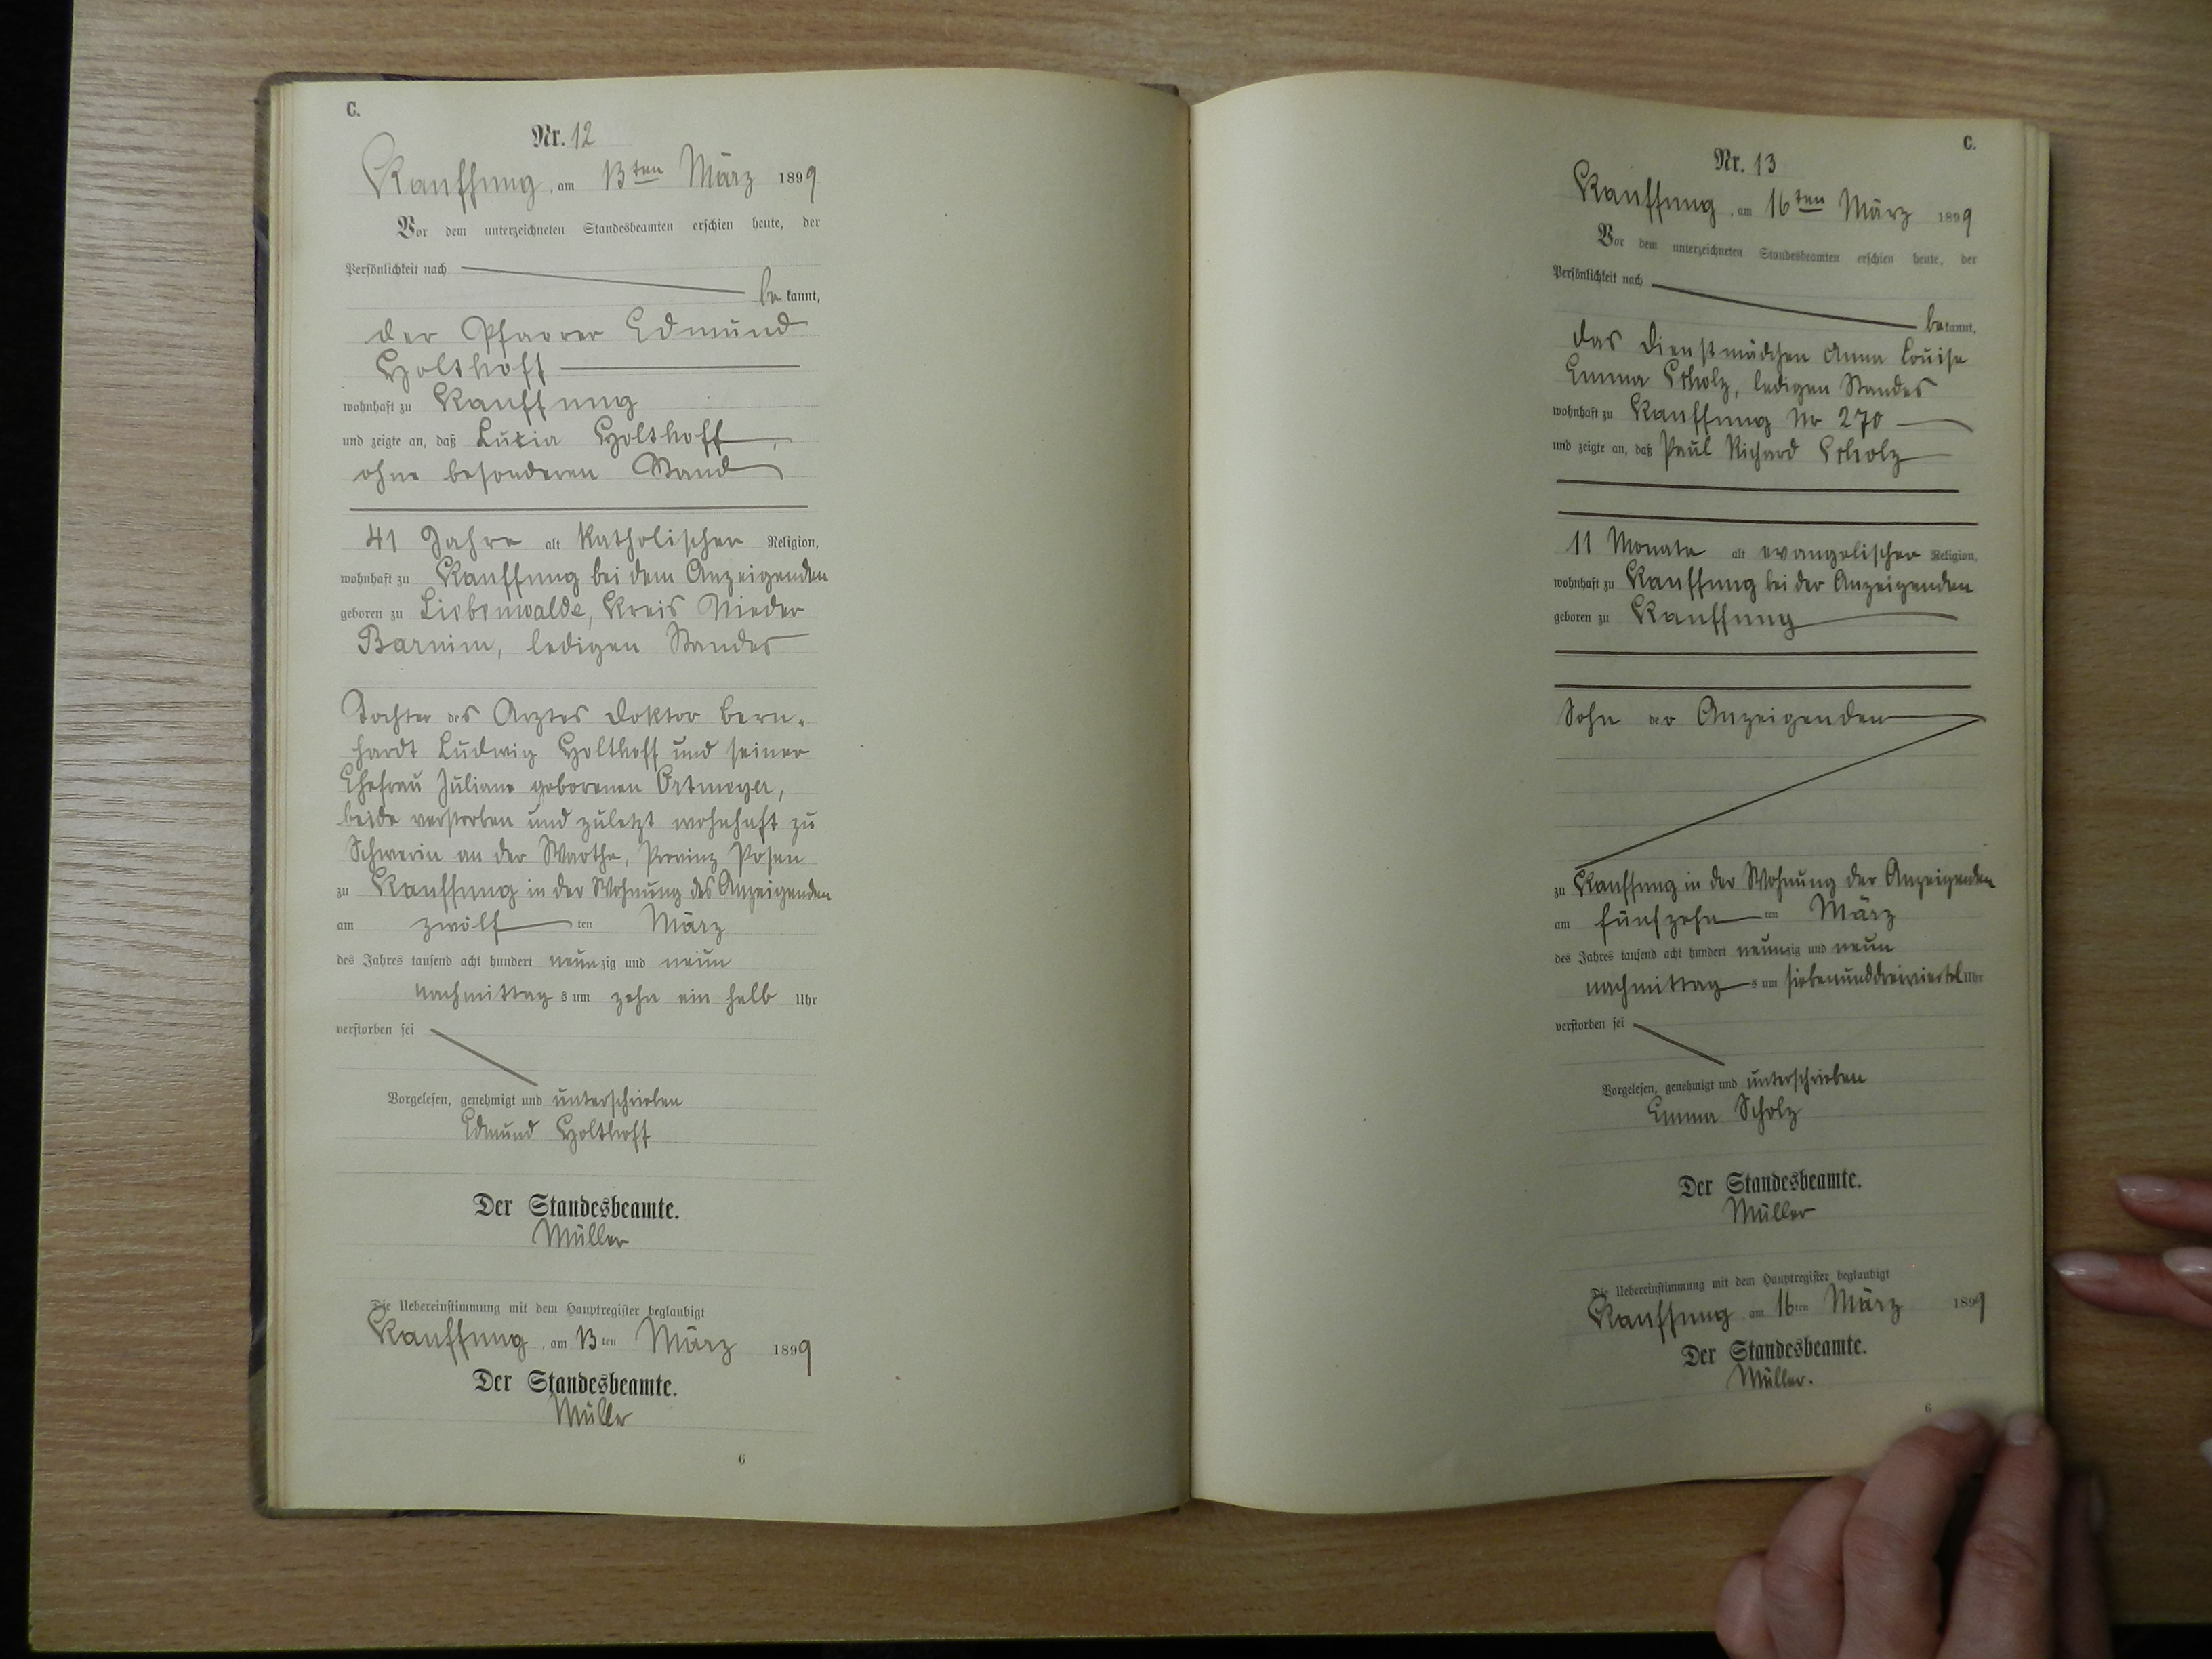 C.
Nr. 12
Kauffung, am 13ten März 1899
Vor dem unterzeichneten Standesbeamten erschien heute, der
Persönlichkeit nach
be kannt,
der Pfarrer Edmund
Holthoff
wohnhaft zu Kauffung
und zeigte an, daß Luzia Holthoff,
ohne besonderen Stand
41 Jahre alt katholischer Religion,
wohnhaft zu Kauffung bei dem Anzeigenden
geboren zu Liebenwalde, Kreis Nieder
Barnim, ledigen Standes
Tochter des Arztes Doktor Bern-
hardt Ludwig Holthoff und seiner
Ehefrau Juliane geborenen Ortmeyer,
beide verstorben und zuletzt wohnhaft zu
Schwerin an der Warthe, Provinz Posen
zu Kauffung in der Wohnung des Anzeigenden
am zwölf ten März
des Jahres tausend acht hundert neunzig und neun
nachmittag s um zehn ein halb Uhr
verstorben sei
Vorgelesen, genehmigt und unterschrieben
Edmund Holthoff
Der Standesbeamte.
Müller
Die Uebereinstimmung mit dem Hauptregister beglaubigt
Kauffung, am 13ten März 1899
Der Standesbeamte.
Müller
6
C.
Nr. 13
Kauffung, am 16ten März 1899
Vor dem unterzeichneten Standesbeamten erschien heute, der
Persönlichkeit nach
bekannt,
das Dienstmädchen Anna Louise
Emma Scholz, ledigen Standes
wohnhaft zu Kauffung Nr 270
und zeigte an, daß Paul Richard Scholz
11 Monate alt evangelischer Religion,
wohnhaft zu Kauffung bei der Anzeigenden
geboren zu Kauffung
Sohn der Anzeigenden
zu Kauffung in der Wohnung der Anzeigenden
am fünfzehn ten März
des Jahres tausend acht hundert neunzig und neun
nachmittag s um siebenunddreiviertel Uhr
verstorben sei
Vorgelesen, genehmigt und unterschrieben
Emma Scholz
Der Standesbeamte.
Müller
Die Uebereinstimmung mit dem Hauptregister beglaubigt
Kauffung, am 16ten März 1899
Der Standesbeamte.
Müller.
6